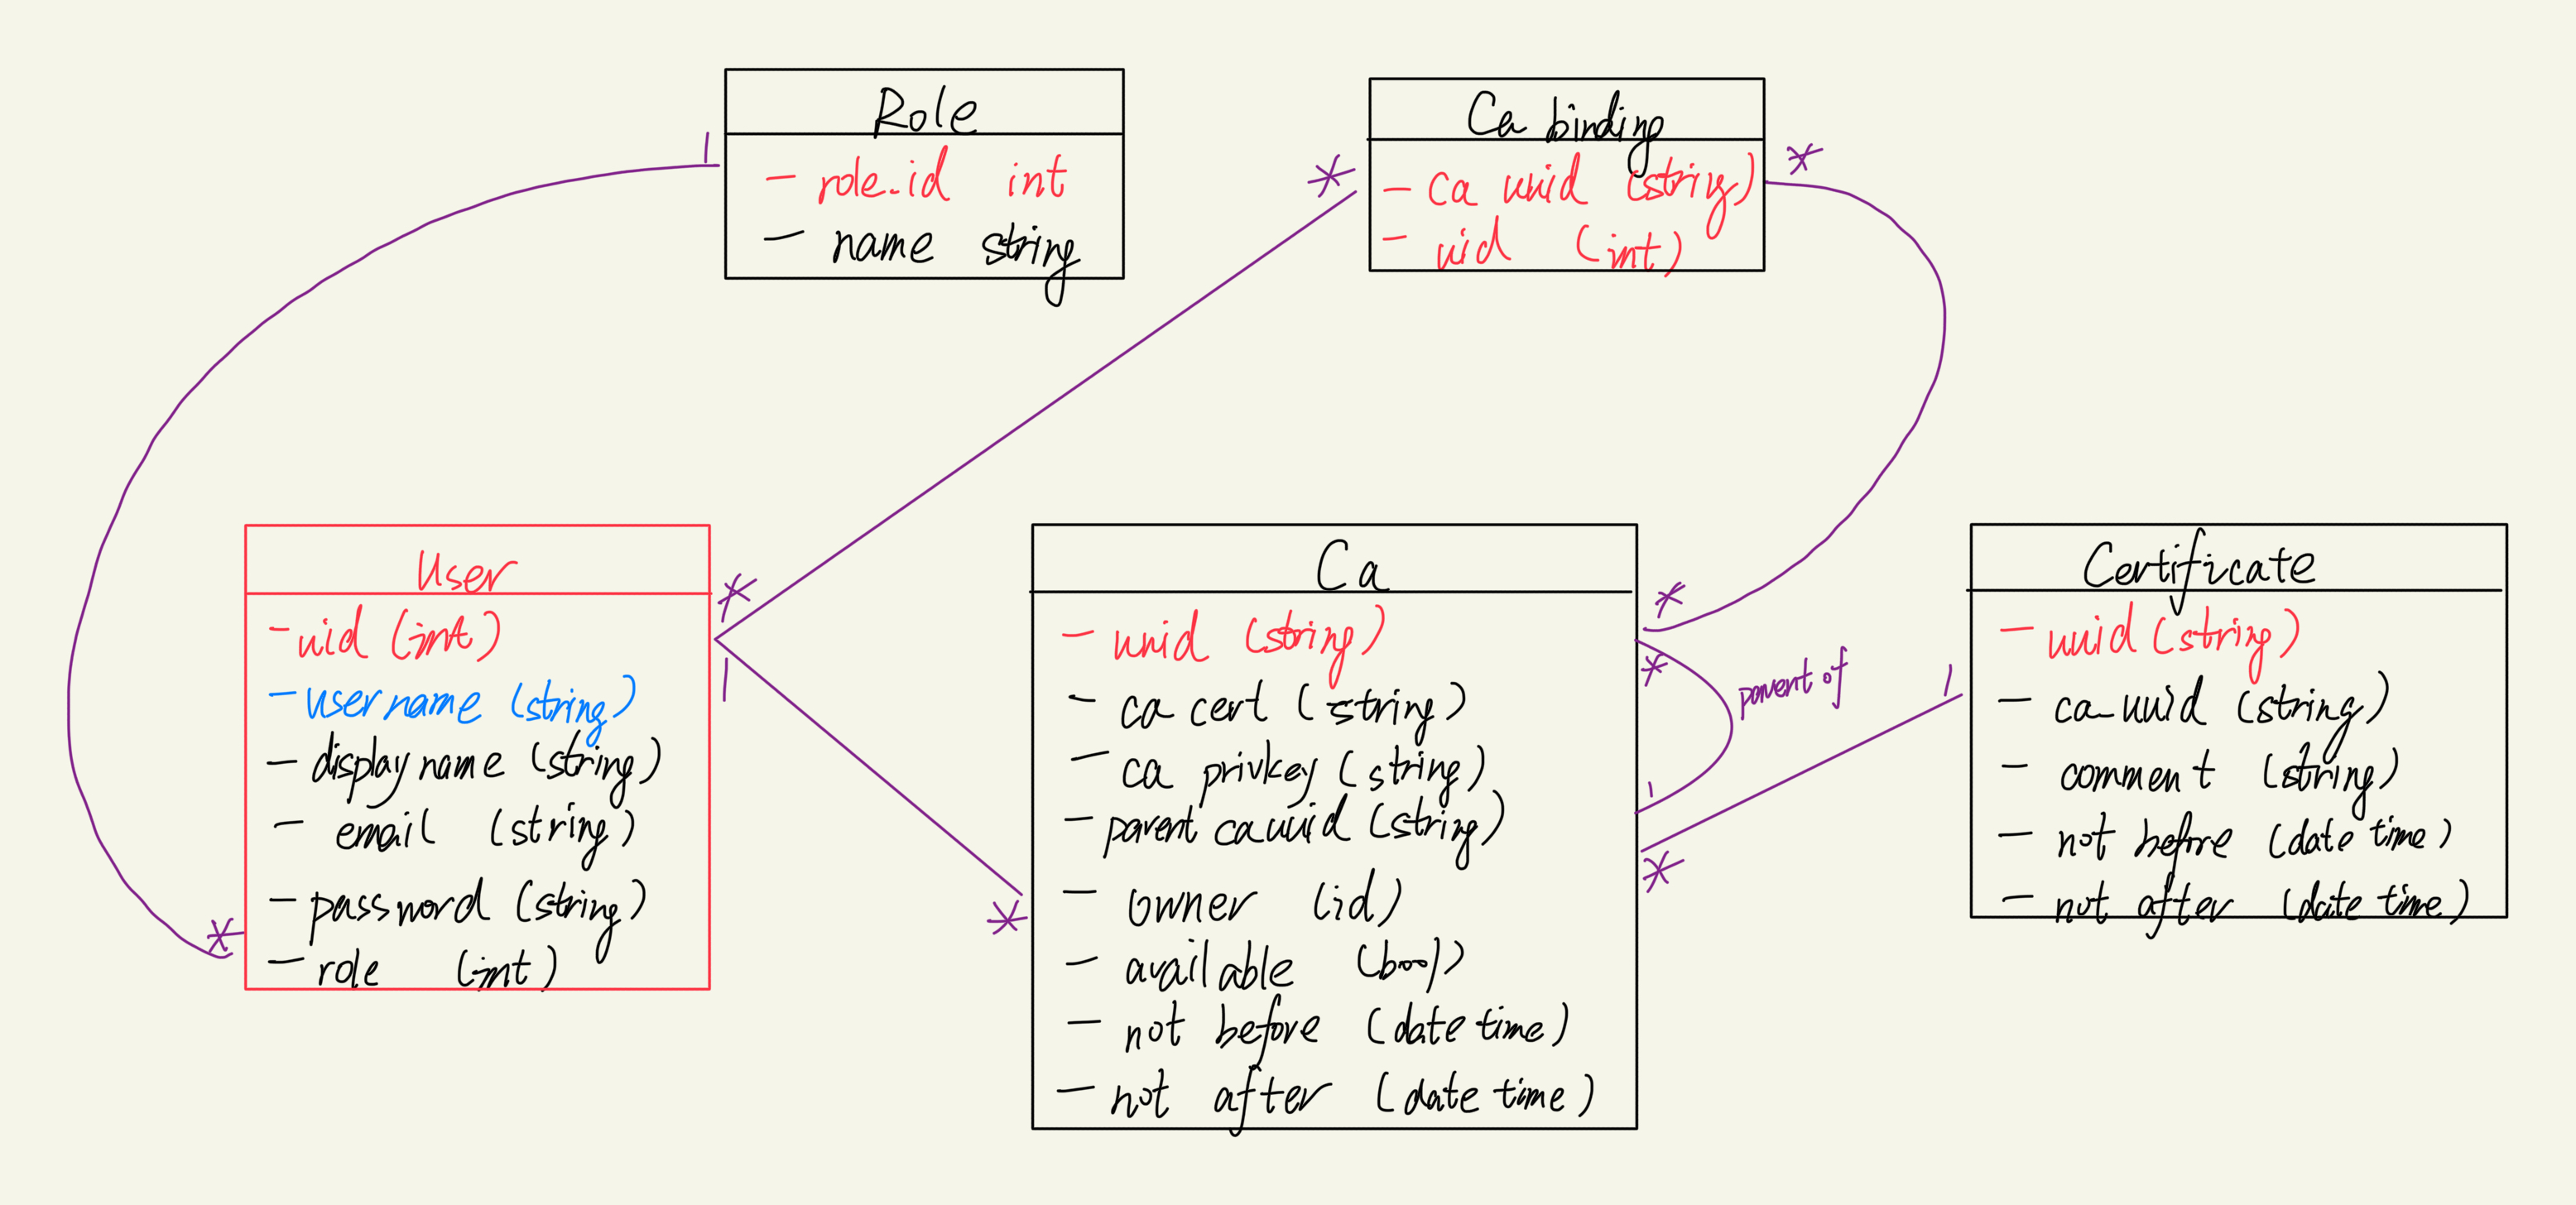 Role
- role-id int
- name string
1
Ca binding
- ca uuid (string)
- uid (int)
*
*
User
- uid (int)
- username (string)
- display name (string)
- email (string)
- password (string)
- role (int)
*
1
*
Ca
- uuid (string)
- ca cert (string)
- ca privkey (string)
- parent ca uuid (string)
- owner (id)
- available (bool)
- not before (date time)
- not after (date time)
*
*
*
parent of
1
1
*
Certificate
- uuid (string)
- ca_uuid (string)
- comment (string)
- not before (date time)
- not after (date time)